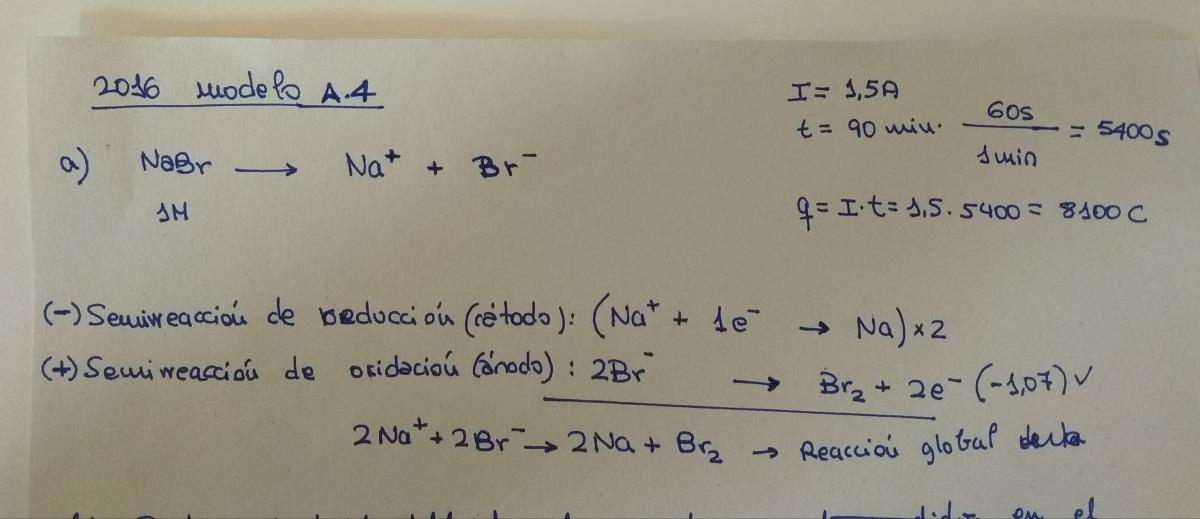 2016 modelo A.4
I = 1,5A
t = 90 min · 60s / 1min = 5400s
q = I·t = 1,5 · 5400 = 8100 C
a) NaBr → Na⁺ + Br⁻
1M
(-) Semirreacción de reducción (cátodo): (Na⁺ + 1e⁻ → Na) × 2
(+) Semirreacción de oxidación (ánodo): 2Br⁻ → Br₂ + 2e⁻ (-1,07) ✓
2Na⁺ + 2Br⁻ → 2Na + Br₂ → Reacción global
en el